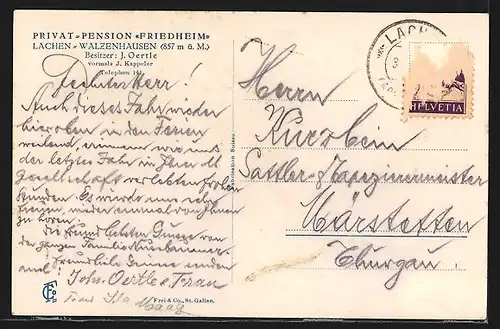 PRIVAT-PENSION «FRIEDHEIM»
LACHEN-WALZENHAUSEN (857 m ü. M.)
Besitzer: J. Oertle
vormals J. Kappeler
Telephon
Herr!
Auch dieses Jahr wieder
hier oben in den Ferien
weilend, erinnern wir uns
der letztes Jahr in Ihrer
Gesellschaft verlebten frohen
Stunden. Es würde uns sehr
freuen, wieder einmal von Ihnen
zu hören.
Die freundlichsten Grüsse von
der ganzen Familie Nussbaumer.
Freundliche Grüsse senden
auch Johs. Oertle & Frau
Frau Maag
Frei & Co., St. Gallen.
LACH
HELVETIA
Herrn
Kurzbein
Sattler & Tapezierermeister
Märstetten
Thurgau.